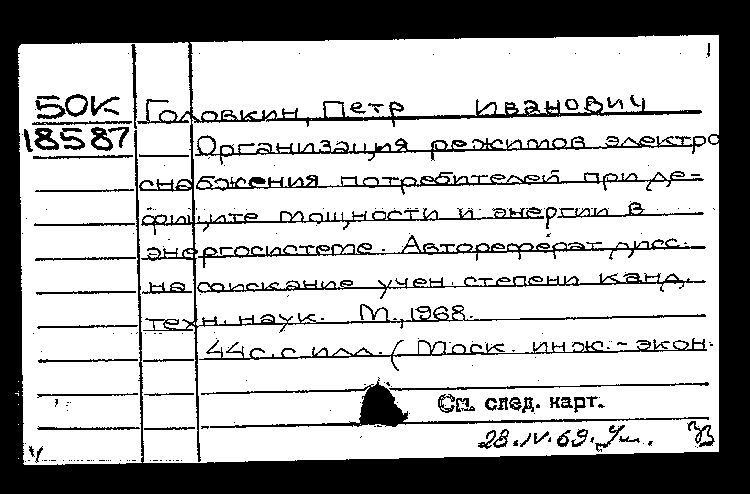 50К Головкин, Петр Иванович
18587 Организация режимов электро
снабжения потребителей при де-
фиците мощности и энергии в
энергосистеме. Автореферат дисс.
на соискание учен. степени канд.
техн. наук. М., 1968.
44с. с илл. (Моск. инж.-экон.
См. след. карт.
28.IV.69.